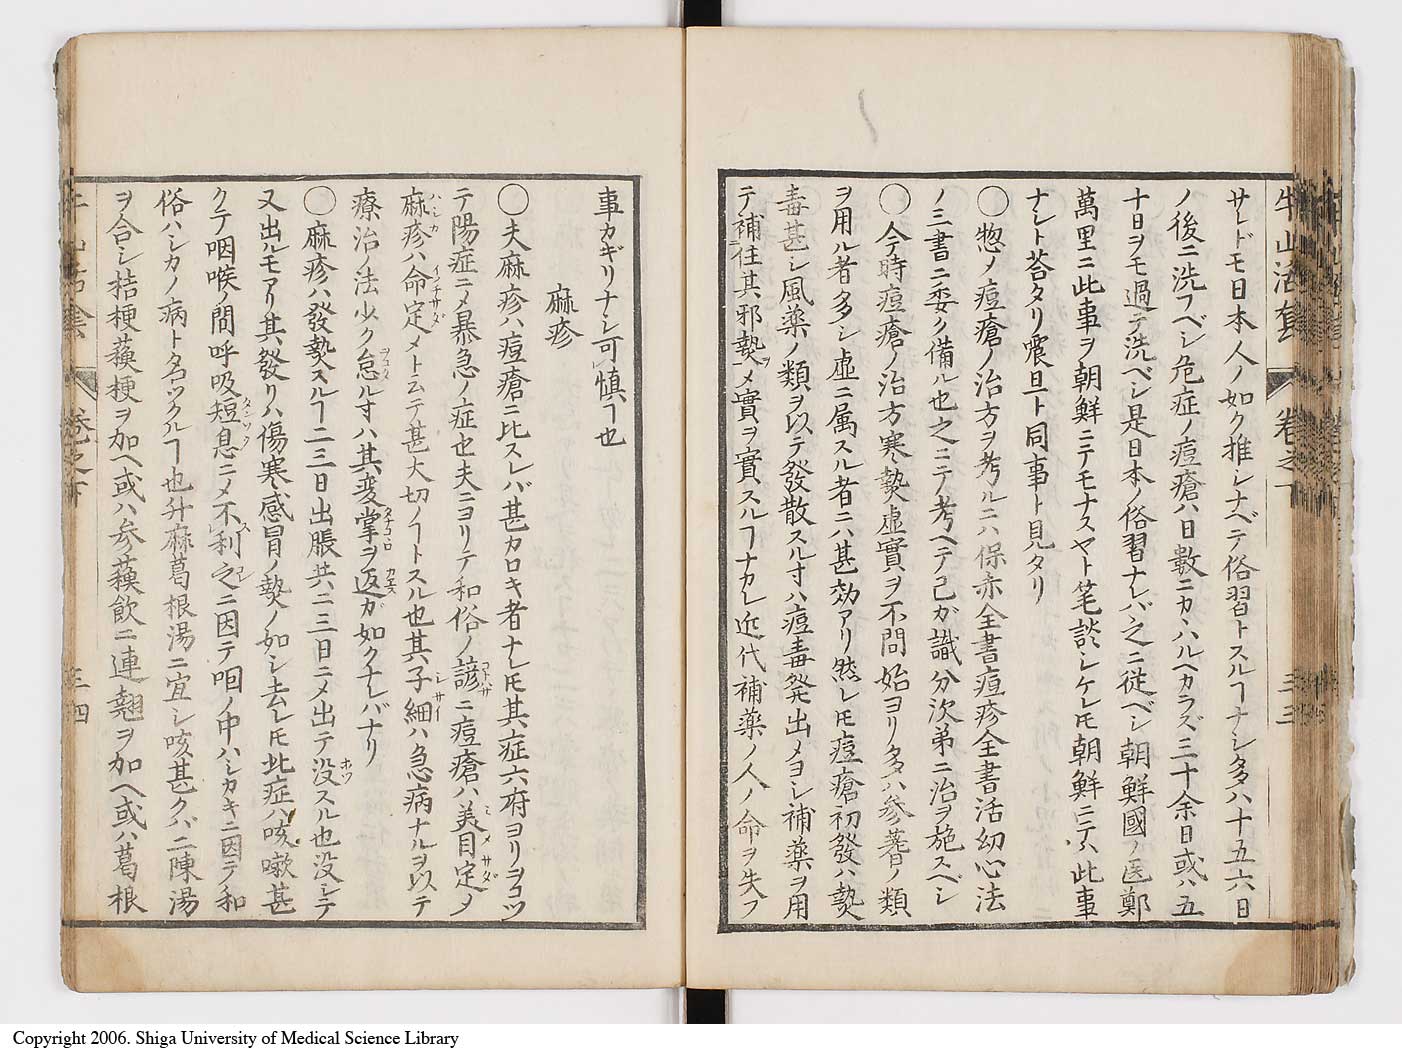 牛山活套 巻之下 三三
サレドモ日本人ノ如ク推シナベテ俗習トスルヿナシ多ハ十五六日
ノ後ニ洗フベシ危症ノ痘瘡ハ日數ニカヽハルヘカラズ三十余日或ハ五
十日ヲモ過テ洗ベシ是日本ノ俗習ナレバ之ニ従ベシ朝鮮國ノ医鄭
萬里ニ此事ヲ朝鮮ニテモナスヤト筆談シケレ𪜈朝鮮ニテハ此事
ナシト荅タリ震旦ト同事ト見タリ
〇惣ノ痘瘡ノ治方ヲ考ルニハ保赤全書痘疹全書活幼心法
ノ三書ニ委ク備ル也之ニテノ考ヘテ己ガ識分次弟ニ治ヲ施スベシ
〇今ノ時痘瘡ノ治方寒熱虚實ヲ不問始ヨリ多ハ參蓍ノ類
ヲ用ル者多シ虚ニ属スル者ニハ甚効アリ然レ𪜈痘瘡初發ハ熱
毒甚シ風薬ノ類ヲ以テ發散スル寸ハ痘毒発出メヨシ補薬ヲ用
テ補住其邪熱ヲメ實ヲ實スルヿナカレ近代補薬ノ人ノ命ヲ失フ
事カギリナシ可慎ヿ也
麻疹
〇夫麻疹ハ痘瘡ニ比スレバ甚カロキ者ナレ𪜈其症六府ヨリヲコツ
テ陽症ニメ暴急ノ症也夫ニヨリテ和俗ノ諺ニ痘瘡ハ美目定メ
麻疹ハ命定メト云テ甚大切ノヿトスル也其子細ハ急病ナルヲ以テ
療治ノ法少ク怠ル寸ハ其変掌ヲ返ガ如クナレバナリ
〇麻疹ハ發熱スルヿ二三日出脹共ニ三日ニメ出テ没スル也没シテ
又出ルモアリ其發リハ傷寒感冒ノ熱ノ如シ去レ𪜈此症ハ咳嗽甚
クテ咽喉ノ間呼吸短息ニメ不利之ニ因テ咽ノ中ハシカキニ因テ和
俗ハシカノ病ト名ツクルヿ也升麻葛根湯ニ宜シ咳甚クバ二陳湯
ヲ合シ桔梗蘓梗ヲ加ヘ或ハ参蘓飲ニ連翹ヲ加ヘ或ハ葛根
牛山活套 巻之下 三四
Copyright 2006. Shiga University of Medical Science Library